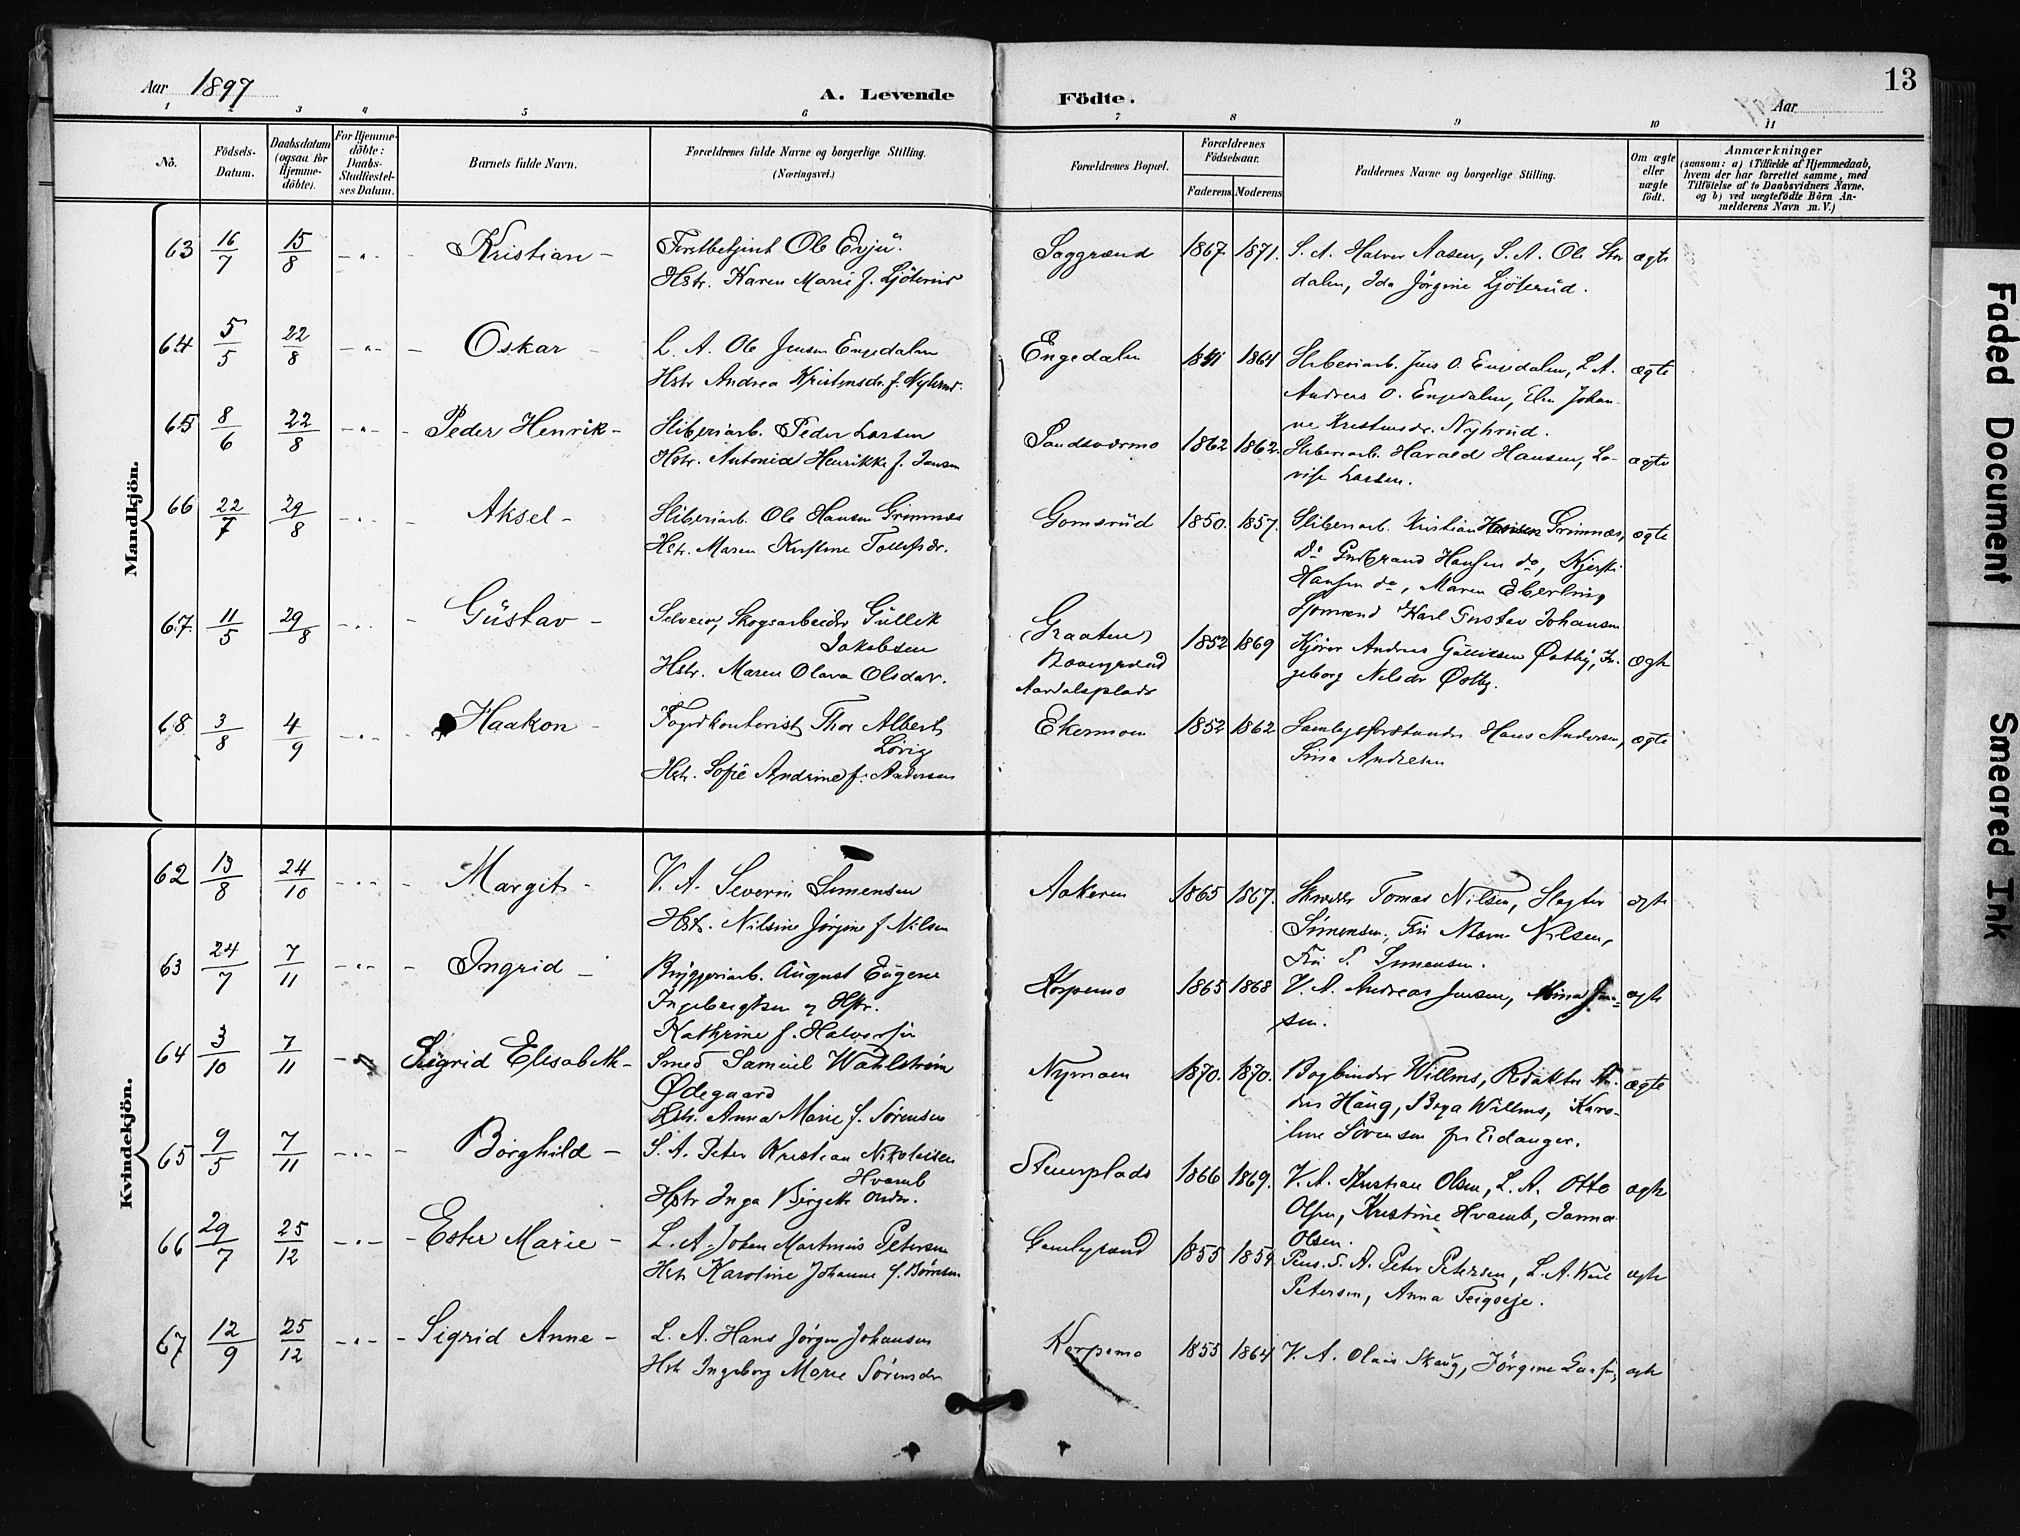 Aar 1897
A. Levende Födte.
Aar
13
1 2 3 4 5 6 7 8 9 10 11
No. Födsels-Datum. Daabsdatum (ogsaa for Hjemmedöbte). For Hjemmedöbte: Daabs-Stadfæstelses Datum. Barnets fulde Navn. Forældrenes fulde Navne og borgerlige Stilling. (Næringsvei.) Forældrenes Bopæl. Forældrenes Födselsaar. Faderens Moderens Faddernes Navne og borgerlige Stilling. Om ægte eller uægte födt. Anmærkninger (saasom: a) i Tilfælde af Hjemmedaab, hvem der har forrettet samme, med Tilföielse af to Daabsvidners Navne, og b) ved uægtefödte Börn Anmelderens Navn m. V.)
Mandkjön.
63 16/7 15/8 - " - Kristian - Ole Evju. Saggrænd 1867. 1871. S. A. Halvor Aasen, S. A. Ole Stor ægte
Hstr. Karen Marie f. Ljøterud dalen, Ida Jørgine Ljøterud.
64 5/5 22/8 - " - Oskar - L. A. Ole Jensen Engedalen Engedalen 1864 Sliberiarb. Jens O. Engedalen, L. A. ægte
Hstr. Andrea Kristensdr. f. Nyhrud. Andreas O. Engedalen, Elen Johan-
ne Kristensdr. Nyhrud.
65 8/6 22/8 - " - Peder Henrik - Sliberiarb. Peder Larsen Sandsværmo 1862 1862. Sliberiarb. Harald Hansen, Lo- ægte
Hstr. Antonia Henrikke f. Jansen vise Larsen.
66 22/7 29/8 - " - Aksel - Sliberiarb. Ole Hansen Grimnæs Gomsrud 1850. 1857. Sliberiarb. Kristian Hansen Grimnæs, ægte
Hstr. Maren Kristine Tollefsdr. Do Gudbrand Hansen do, Kjersti
Hansen do, Maren Eberling
67 11/5 29/8 - " - Gustav - Selveier, Skogsarbeider Gullik Karl Gustav Johansen
Jakobsen (Graaten) 1852 1869 Kjører Andreas Gulliksen Østby, In- ægte
Hstr. Maren Olava Olsdar. geborg Nilsdr Østby.
Aardalsplads
68 3/8 4/9 - " - Haakon - Fogedkontorist Thor Albert Ekermoen 1852 1862 Samlagsforstander Hans Andersen, ægte
Lövig Sina Andresen
Hstr. Sofie Andrine f. Andersen
Kvindekjön.
62 13/8 24/10 - " - Margit - V. A. Severin Simensen Aakeren 1865 1867. Skrædder Tomas Nilsen, Slagter ægte
Hstr. Nilsine Jørgine f. Nilsen Simensen, Fru Maren Nilsen,
Fru S. Simensen.
63 24/7 7/11 - " - Ingrid - Bryggeriarb. August Eugene Korpemo 1865 1868 V. A. Andreas Jensen, Mina Jen- ægte
Ingebrigtsen og Hstr. sen.
Kathrine f. Halvorsen
64 3/10 7/11 - " - Sigrid Elisabeth - Smed Samuel Wahlstrøm Nymoen 1870. 1870. Bogbinder Willms, Redaktør An- ægte
Ødegaard ders Haug, Borga Willms, Karo-
Hstr. Anna Marie f. Sørensen line Sørensen fra Eidanger.
65 9/5 7/11 - " - Borghild - S. A. Peter Kristian Nikolaisen Stenersplads 1866 1869. V. A. Kristian Olsen, L. A. Otto ægte
Hvamb Olsen, Kristine Hvamb, Janna
Hstr Inga Birgette Olsdr. Olsen.
66 29/7 25/12 - " - Ester Marie - L. A. Johan Martinus Petersen Gamlegrænd 1855 1859. Pens. S. A. Peter Petersen, L. A. Karl ægte
Hstr Karoline Johanne f. Børresen Petersen, Anna Teigseje.
67 12/9 25/12 - " - Sigrid Anne - L. A. Hans Jørgen Johansen Korpemo 1855 1864 V. A. Olaus Skaug, Jörgine Larsen, ægte
Hstr Ingeborg Marie Sørensdr
Faded Document
Smeared Ink